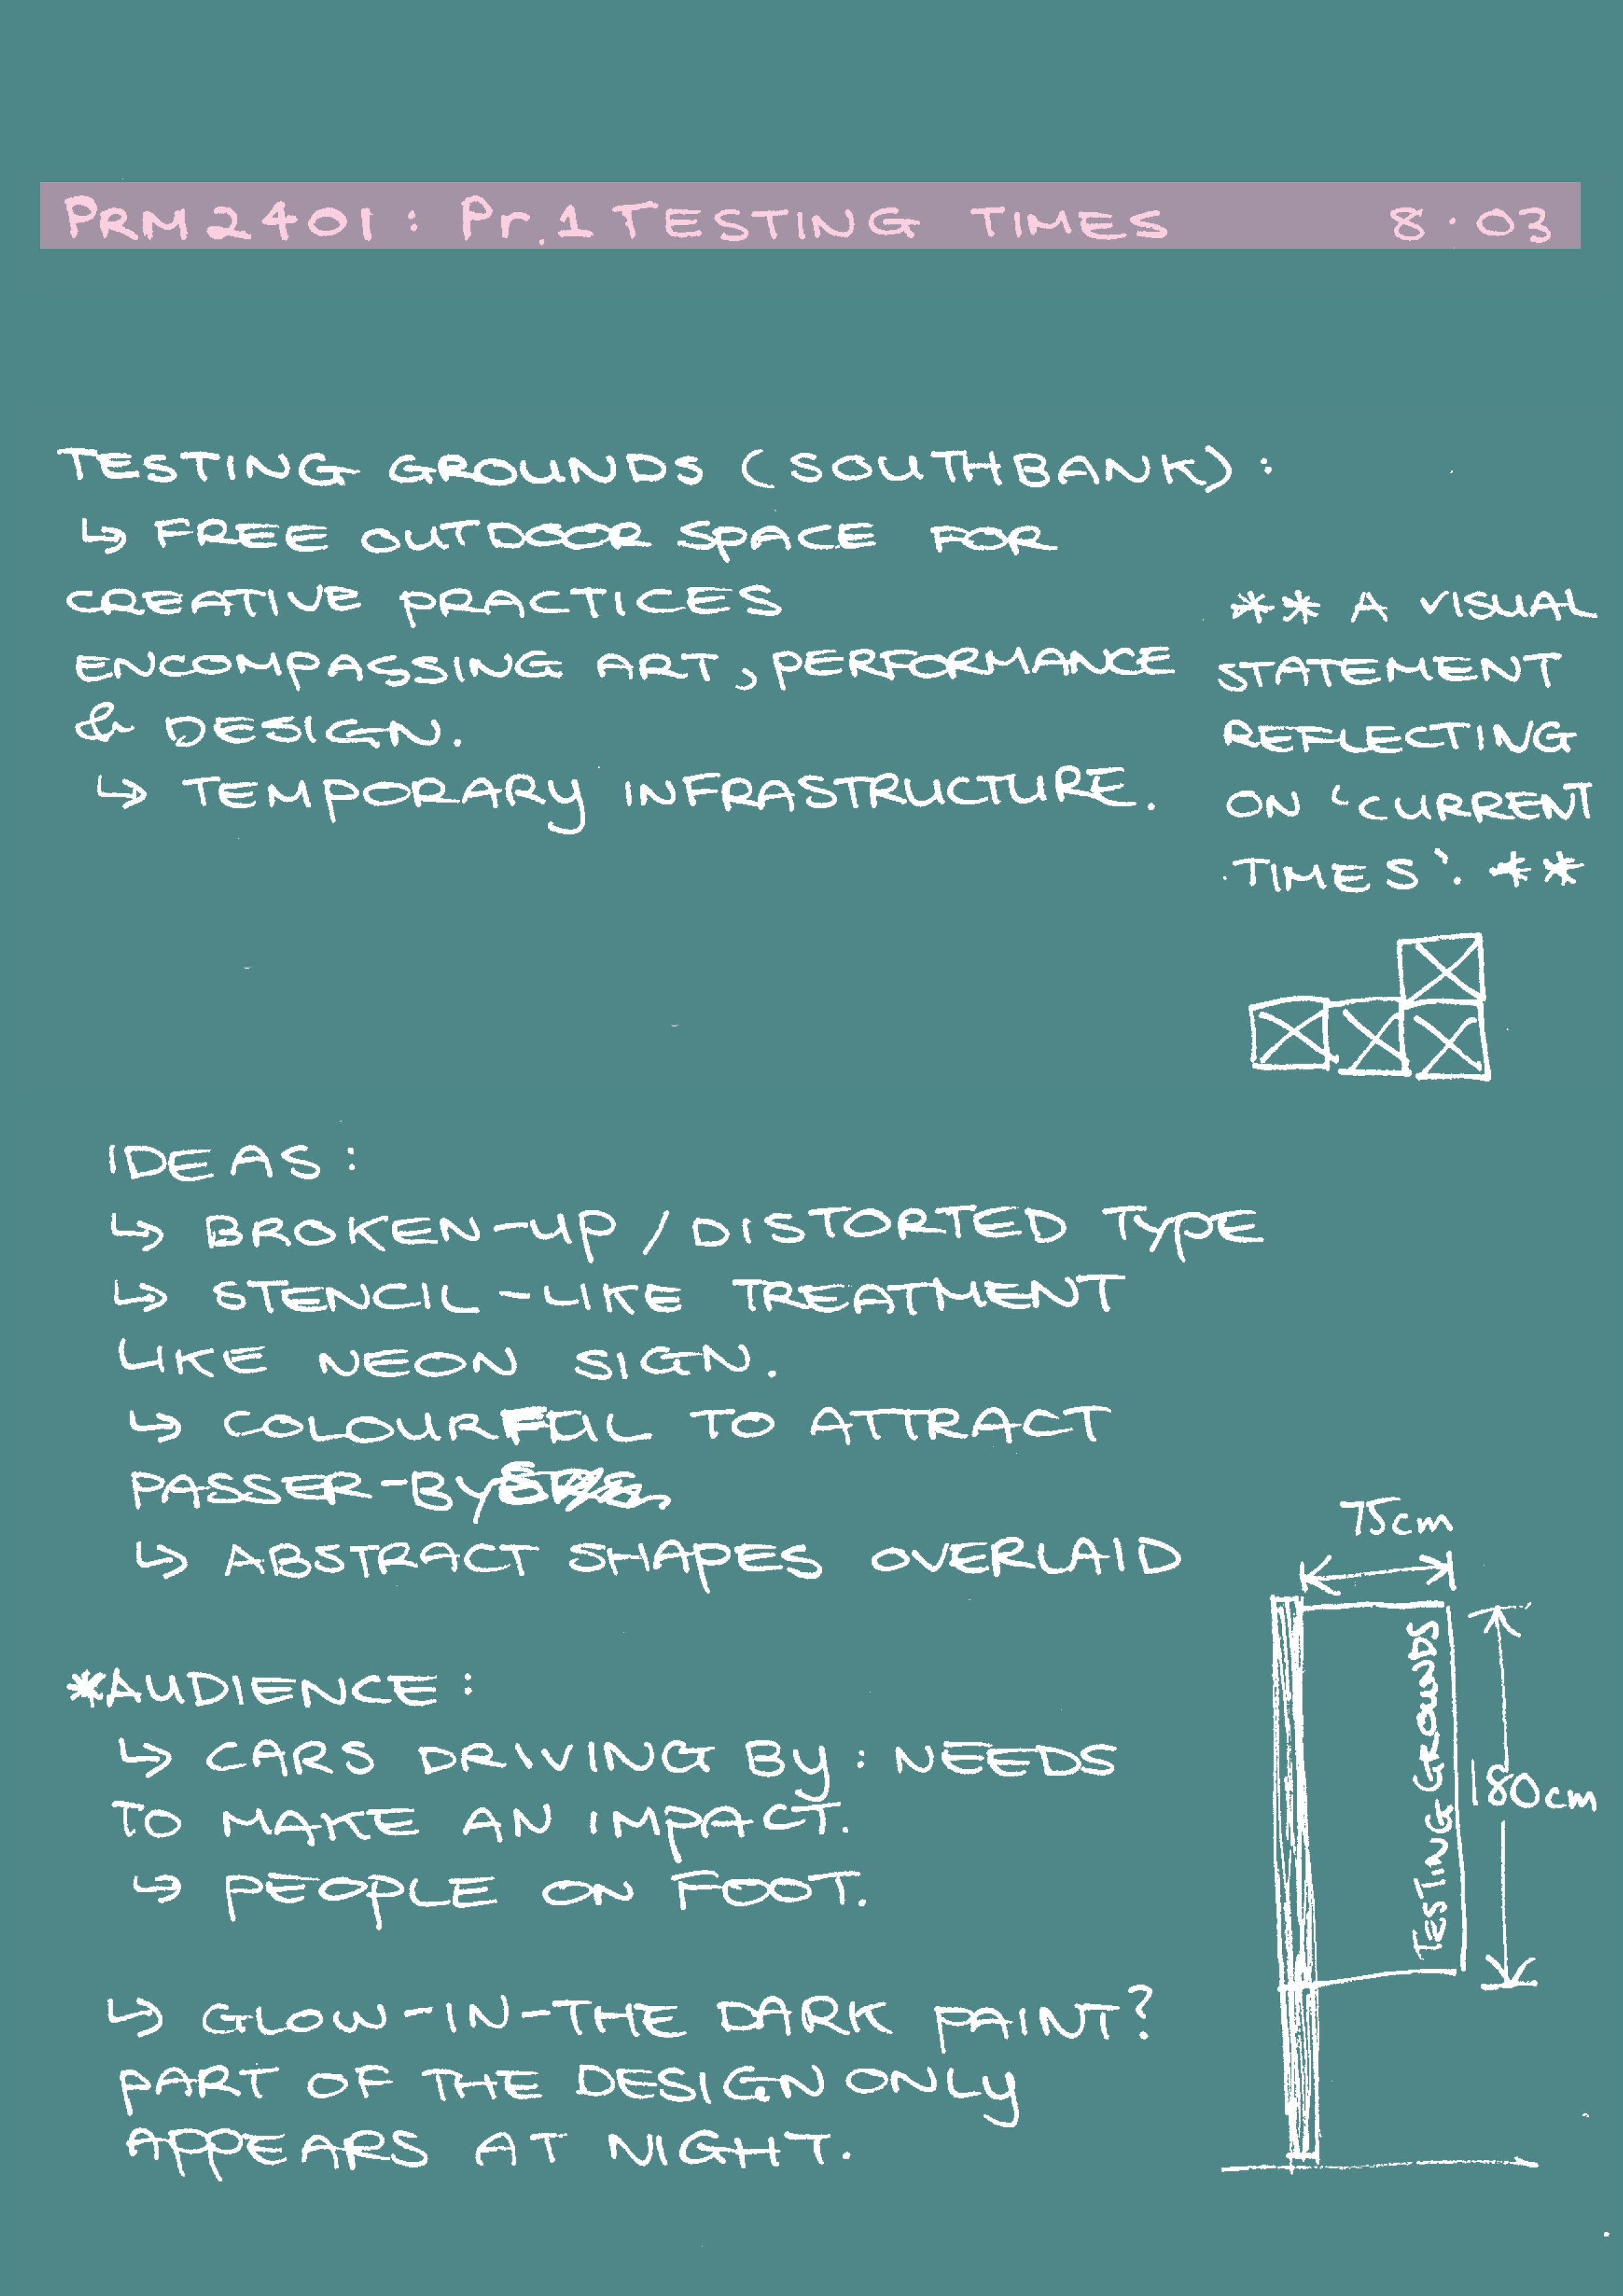 PRM2401: Pr.1 TESTING TIMES 8.03
TESTING GROUNDS (SOUTHBANK):
↳ FREE OUTDOOR SPACE FOR
CREATIVE PRACTICES
ENCOMPASSING ART, PERFORMANCE
& DESIGN.
↳ TEMPORARY INFRASTRUCTURE.
** A VISUAL
STATEMENT
REFLECTING
ON 'CURRENT
TIMES'. **
IDEAS:
↳ BROKEN-UP / DISTORTED TYPE
↳ STENCIL-LIKE TREATMENT
LIKE NEON SIGN.
↳ COLOURFUL TO ATTRACT
PASSER-BYS
↳ ABSTRACT SHAPES OVERLAID
*AUDIENCE:
↳ CARS DRIVING BY: NEEDS
TO MAKE AN IMPACT.
↳ PEOPLE ON FOOT.
↳ GLOW-IN-THE DARK PAINT?
PART OF THE DESIGN ONLY
APPEARS AT NIGHT.
75cm
TESTING GROUNDS
180cm